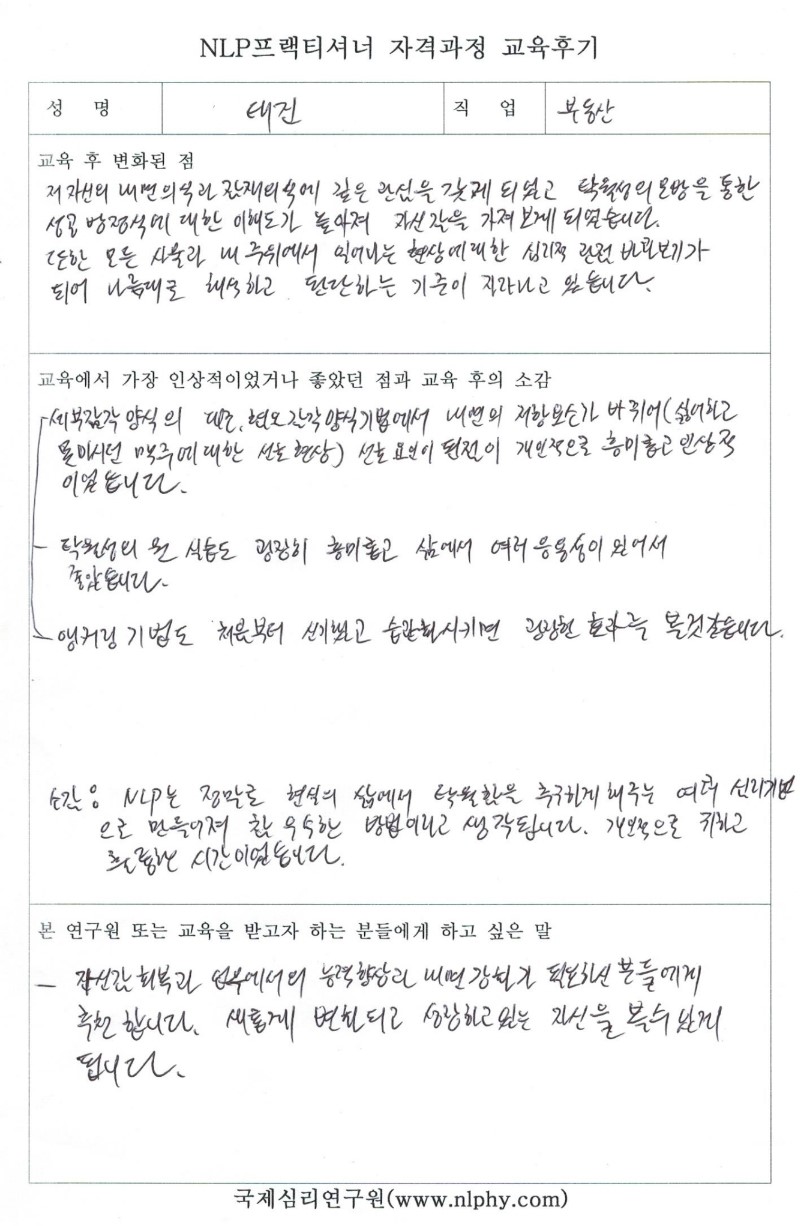 NLP프랙티셔너 자격과정 교육후기
성 명 태진 직 업 부동산
교육 후 변화된 점
저 자신의 내면의식과 잠재의식에 깊은 관심을 갖게 되었고 탁월성의 모방을 통한
성공 방정식에 대한 이해도가 높아져 자신감을 가져보게 되었습니다.
또한 모든 사물과 내 주위에서 일어나는 현상에 대한 심리적 관점 바꿔보기가
되어 나름대로 해석하고 판단하는 기준이 자라나고 있습니다.
교육에서 가장 인상적이었거나 좋았던 점과 교육 후의 소감
세부감각 양식의 대조, 혐오감각양식기법에서 내면의 저항요소가 바뀌어(싫어하고
못마시던 맥주에 대한 선호현상) 선호요인이 된 전이 개인적으로 흥미롭고 인상적
이었습니다.
- 탁월성의 원 실습도 굉장히 흥미롭고 삶에서 여러 응용성이 있어서
좋았습니다.
- 앵커링 기법도 처음부터 신기했고 습관화시키면 굉장한 효과를 볼것 같습니다.
소감: NLP는 정말로 현실의 삶에서 탁월함을 추구하게 해주는 여러 심리기법
으로 만들어져 참 우수한 방법이라고 생각됩니다. 개인적으로 귀하고
훌륭한 시간이었습니다.
본 연구원 또는 교육을 받고자 하는 분들에게 하고 싶은 말
- 자신감 회복과 업무에서의 능력향상과 내면강화가 필요하신 분들에게
추천 합니다. 새롭게 변화되고 성장하고 있는 자신을 볼수 있게
됩니다.
국제심리연구원(www.nlphy.com)